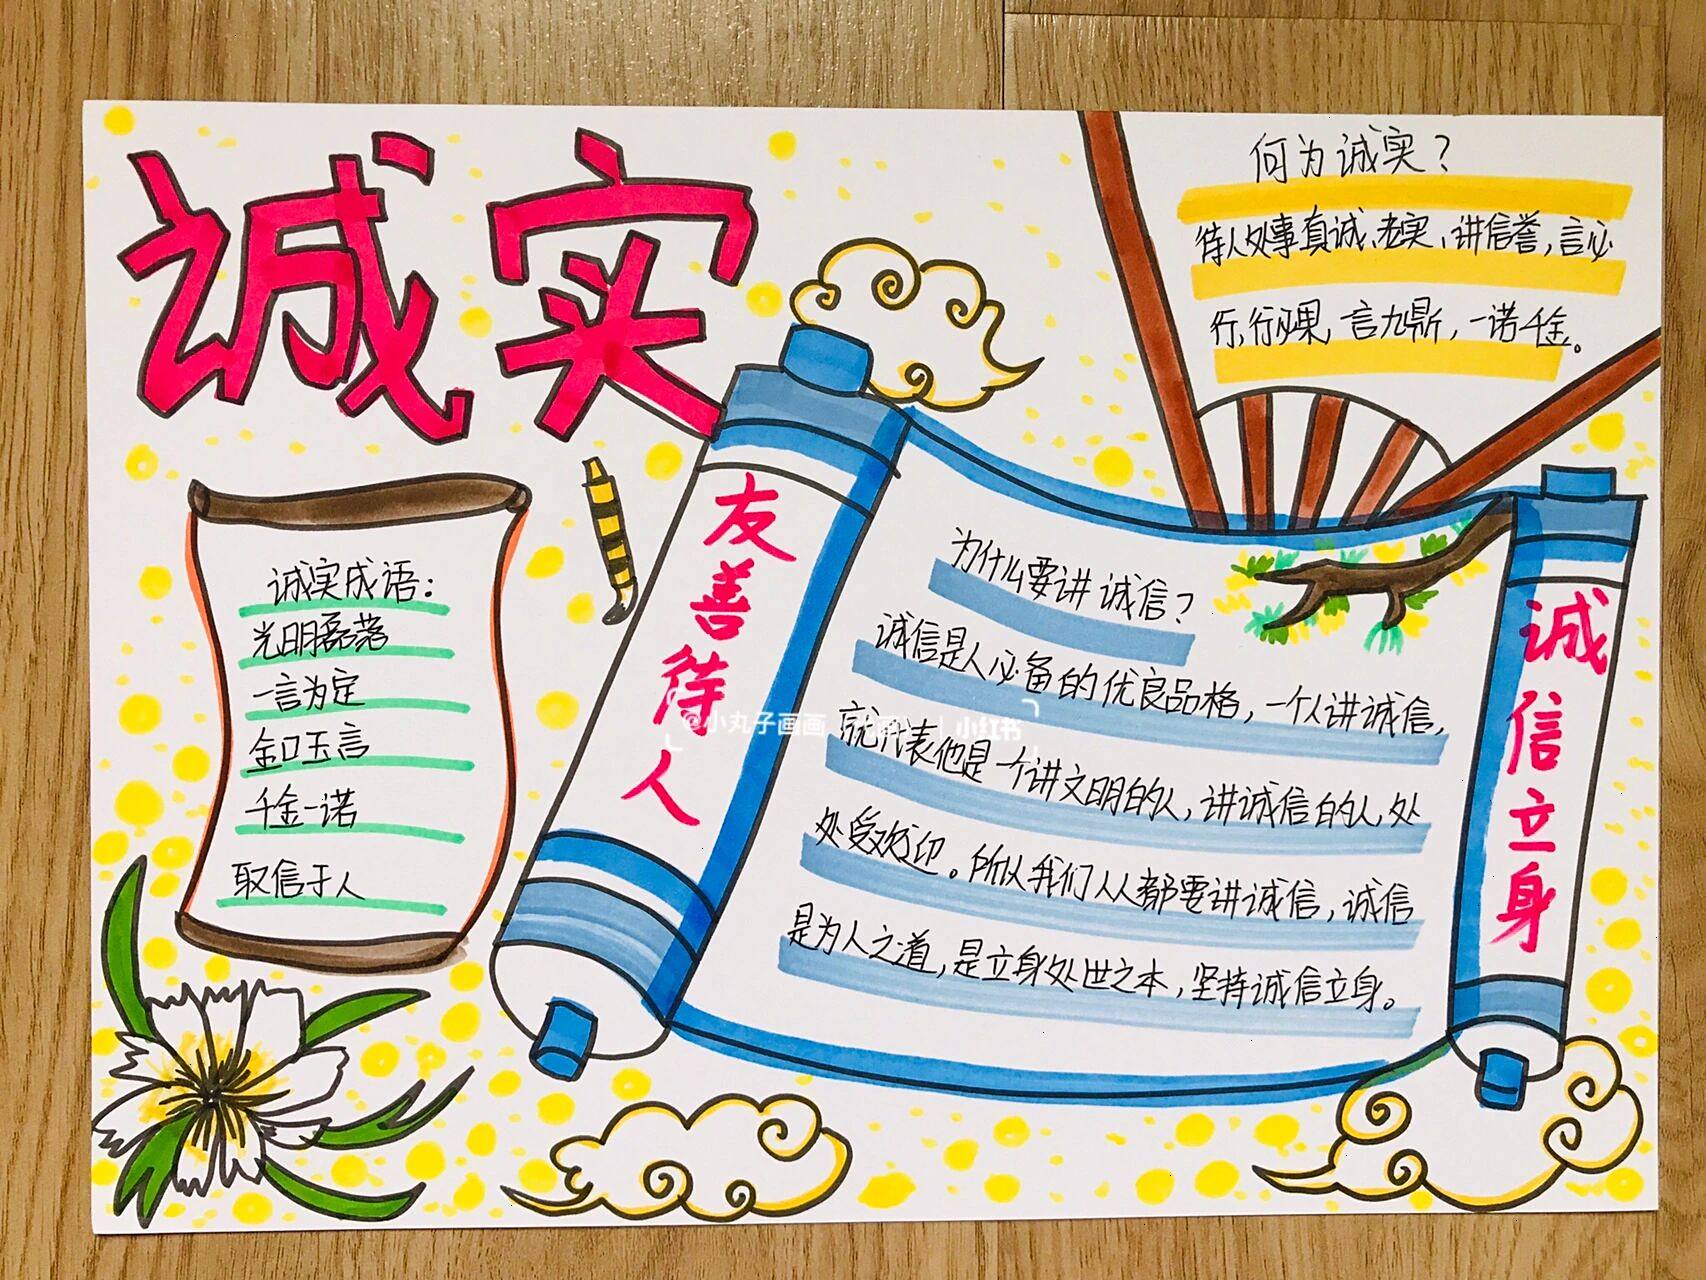 诚实
何为诚实？
待人处事真诚、老实、讲信誉，言必
行，行必果，一言九鼎，一诺千金。
诚实成语：
光明磊落
一言为定
金口玉言
千金一诺
取信于人
友善待人
为什么要讲诚信？
诚信是人必备的优良品格，一个人讲诚信，
就代表他是一个讲文明的人，讲诚信的人，处
处受欢迎。所以我们人人都要讲诚信，诚信
是为人之道，是立身处世之本，坚持诚信立身。
诚信立身
@小丸子画画
小红书